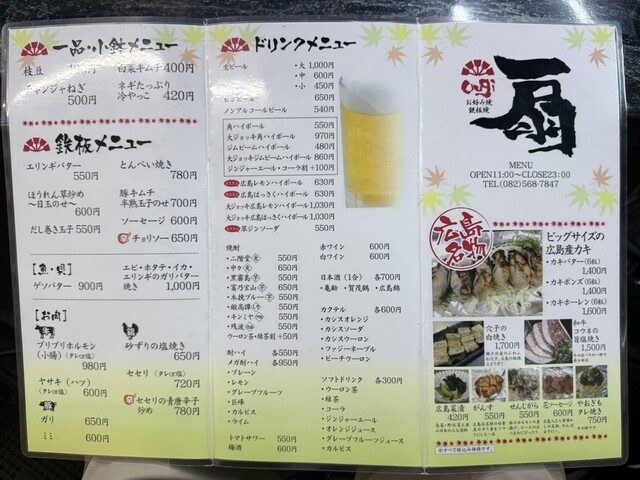 一品・小鉢メニュー
枝豆 400円
白菜キムチ 400円
チャンジャねぎ
500円
ネギたっぷり
冷やっこ 420円
鉄板メニュー
エリンギバター
550円
とんぺい焼き
780円
ほうれん草炒め
〜目玉のせ〜
600円
豚キムチ
半熟玉子のせ 700円
ソーセージ 600円
だし巻き玉子 550円
チョリソー 650円
[魚・貝]
ゲソバター 900円
エビ・ホタテ・イカ・
エリンギのガリバター
焼き 1,000円
[お肉]
プリプリホルモン
(小腸)〈タレor塩〉
980円
砂ずりの塩焼き
650円
ヤサキ(ハツ)
〈タレor塩〉 600円
セセリ〈タレor塩〉
720円
セセリの青唐辛子
炒め 780円
ガリ 650円
ミミ 600円
ドリンクメニュー
生ビール ・大 1,000円
・中 600円
・小 450円
ビンビール 650円
ノンアルコールビール 540円
角ハイボール 550円
大ジョッキ角ハイボール 970円
ジムビームハイボール 480円
大ジョッキジムビームハイボール 860円
ジンジャーエール・コーラ割 +100円
広島レモンハイボール 630円
広島はっさくハイボール 630円
大ジョッキ広島レモンハイボール 1,030円
大ジョッキ広島はっさくハイボール 1,030円
翠ジンソーダ 550円
焼酎
・二階堂 麦 550円
・中々 麦 550円
・黒霧島 芋 550円
・富乃宝山 芋 550円
・木挽ブルー 芋 550円
・鍛高譚 550円
・キンミヤ 550円
・残波 550円
ウーロン茶・緑茶割 +50円
酎ハイ 各550円
メガ酎ハイ 各950円
・プレーン
・レモン
・グレープフルーツ
・巨峰
・カルピス
・ライム
トマトサワー 550円
梅酒 600円
赤ワイン 600円
白ワイン 600円
日本酒(1合) 各700円
・亀齢 ・賀茂鶴 ・広島錦
カクテル 各600円
・カシスオレンジ
・カシスソーダ
・カシスウーロン
・ファジーネーブル
・ピーチウーロン
ソフトドリンク 各300円
・ウーロン茶
・緑茶
・コーラ
・ジンジャーエール
・オレンジジュース
・グレープフルーツジュース
・カルピス
お好み焼
鉄板焼
扇
MENU
OPEN11:00〜CLOSE23:00
TEL(082)568-7847
広島名物
ビッグサイズの
広島産カキ
・カキバター(6粒)
1,400円
・カキポンズ(6粒)
1,400円
・カキホーレン(6粒)
1,600円
穴子の
白焼き
1,700円
和牛
コウネの
旨塩焼き
1,500円
広島菜漬
420円
がんす
550円
せんじがら
550円
花ソーセージ
600円
やおぎも
タレ焼き
750円
※すべて税込み価格です。